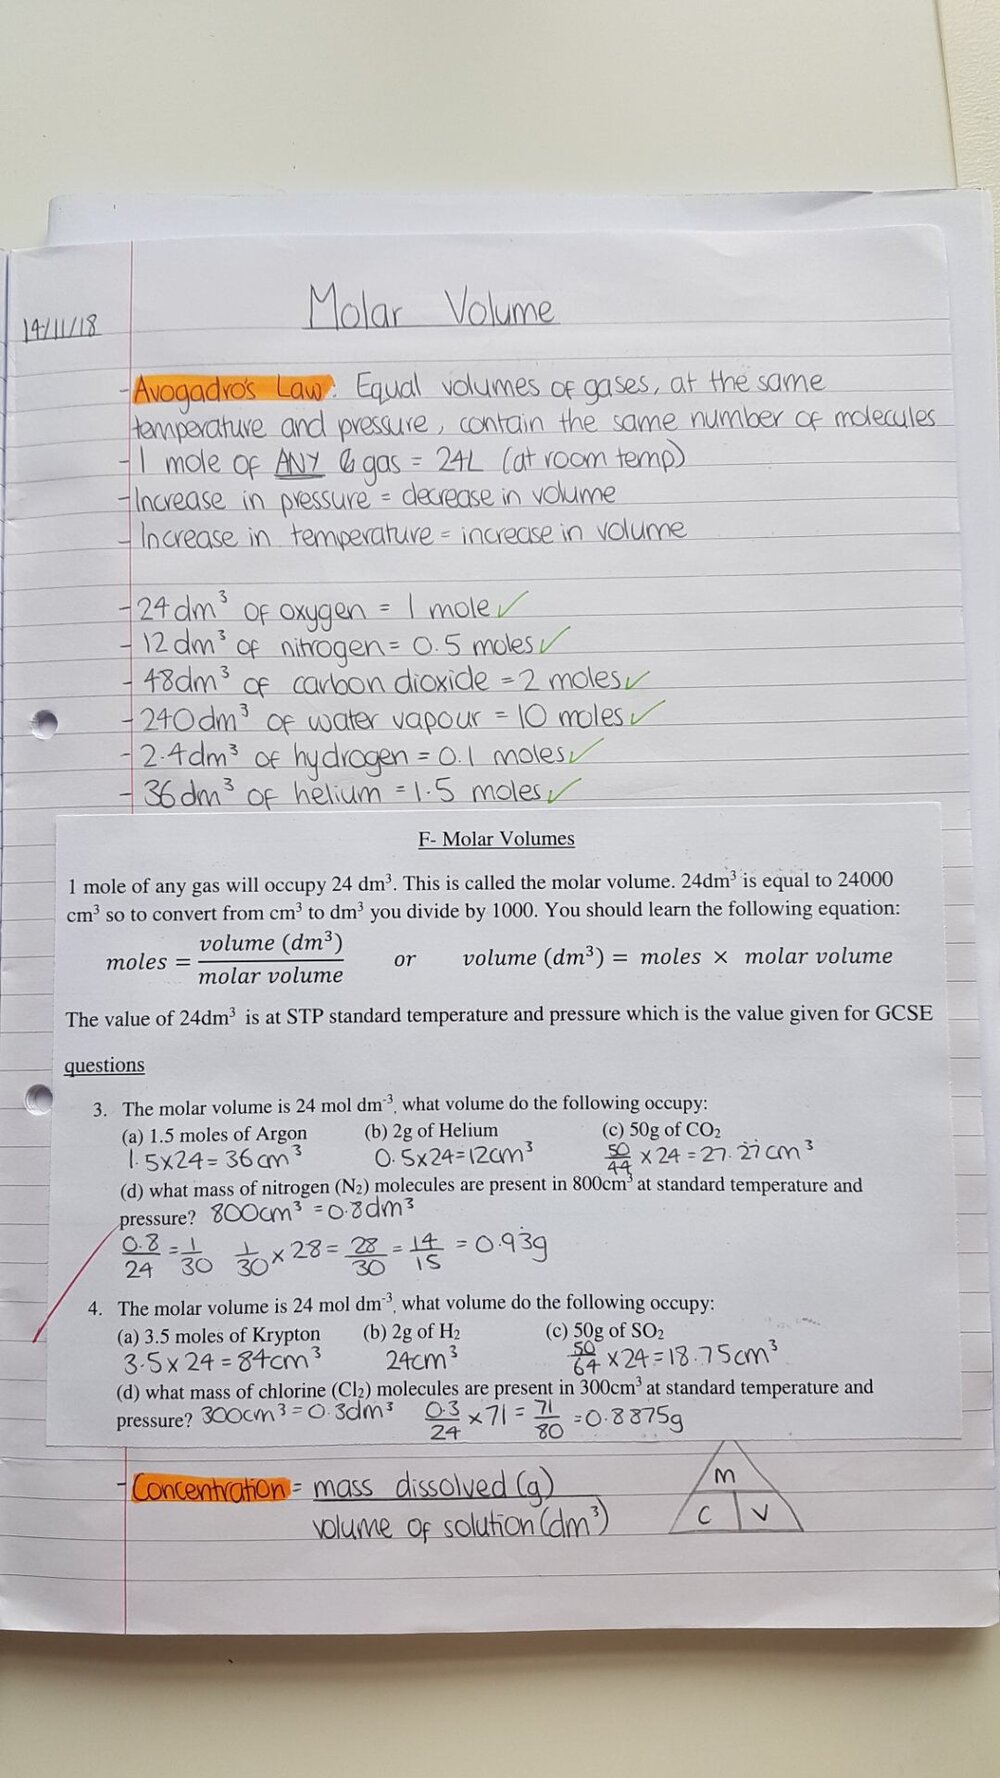 Molar Volume
14/11/18
- Avogadro's Law: Equal volumes of gases, at the same
temperature and pressure, contain the same number of molecules
- 1 mole of ANY gas = 24L (at room temp)
- Increase in pressure = decrease in volume
- Increase in temperature = increase in volume
- 24dm³ of oxygen = 1 mole ✓
- 12dm³ of nitrogen = 0.5 moles ✓
- 48dm³ of carbon dioxide = 2 moles ✓
- 240dm³ of water vapour = 10 moles ✓
- 2.4dm³ of hydrogen = 0.1 moles ✓
- 36dm³ of helium = 1.5 moles ✓
F- Molar Volumes
1 mole of any gas will occupy 24 dm³. This is called the molar volume. 24dm³ is equal to 24000
cm³ so to convert from cm³ to dm³ you divide by 1000. You should learn the following equation:
moles = volume (dm³) / molar volume or volume (dm³) = moles × molar volume
The value of 24dm³ is at STP standard temperature and pressure which is the value given for GCSE
questions
3. The molar volume is 24 mol dm⁻³, what volume do the following occupy:
(a) 1.5 moles of Argon (b) 2g of Helium (c) 50g of CO₂
1.5x24 = 36cm³ 0.5x24=12cm³ 50/44 x 24 = 27.2̇7̇cm³
(d) what mass of nitrogen (N₂) molecules are present in 800cm³ at standard temperature and
pressure? 800cm³ = 0.8dm³
0.8/24 = 1/30 1/30 x 28 = 28/30 = 14/15 = 0.93̇g
4. The molar volume is 24 mol dm⁻³, what volume do the following occupy:
(a) 3.5 moles of Krypton (b) 2g of H₂ (c) 50g of SO₂
3.5x24 = 84cm³ 24cm³ 50/64 x24=18.75cm³
(d) what mass of chlorine (Cl₂) molecules are present in 300cm³ at standard temperature and
pressure? 300cm³ = 0.3dm³ 0.3/24 x 71 = 71/80 = 0.8875g
- Concentration = mass dissolved (g)
volume of solution (dm³)
m
c v